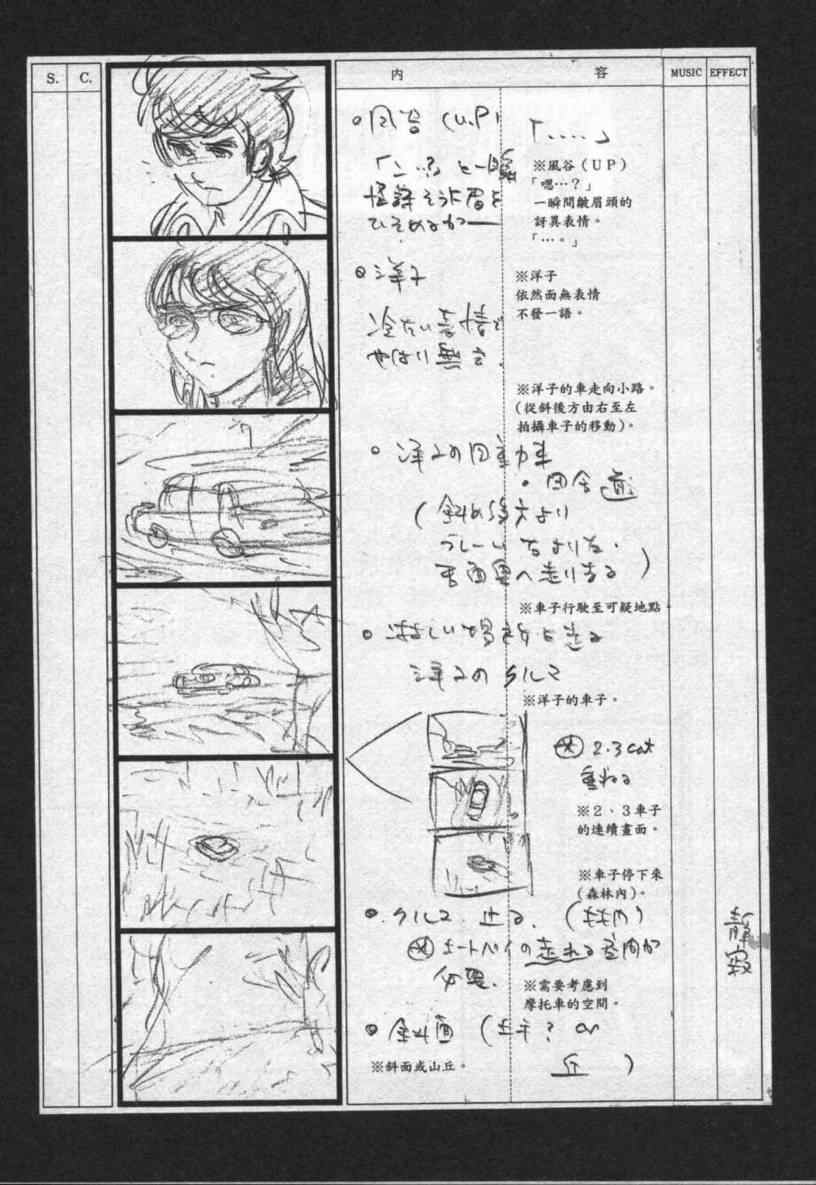 S.
C.
内
容
MUSIC
EFFECT
風谷 (U.P)
「ン…?」と一瞬
怪訝そうに眉を
ひそめるが——
「....」
※風谷（UP）
「嗯…？」
一瞬間皺眉頭的
訝異表情。
「…。」
洋子
冷たい表情で
やはり無言.
※洋子
依然面無表情
不發一語。
※洋子的車走向小路。
(從斜後方由右至左
拍攝車子的移動)。
洋子の自動車
・田舎道
(斜め後方より
右より左
走り去る)
※車子行駛至可疑地點。
淋しい場所を走る
洋子のクルマ
※洋子的車子。
2.3 cut
重ねる
※2、3車子
的連續畫面。
※車子停下來
(森林內)。
クルマ 止る. (林内)
オートバイの走れる空間が
必要.
※需要考慮到
摩托車的空間。
斜面 (土手? or
丘 )
※斜面或山丘。
静寂